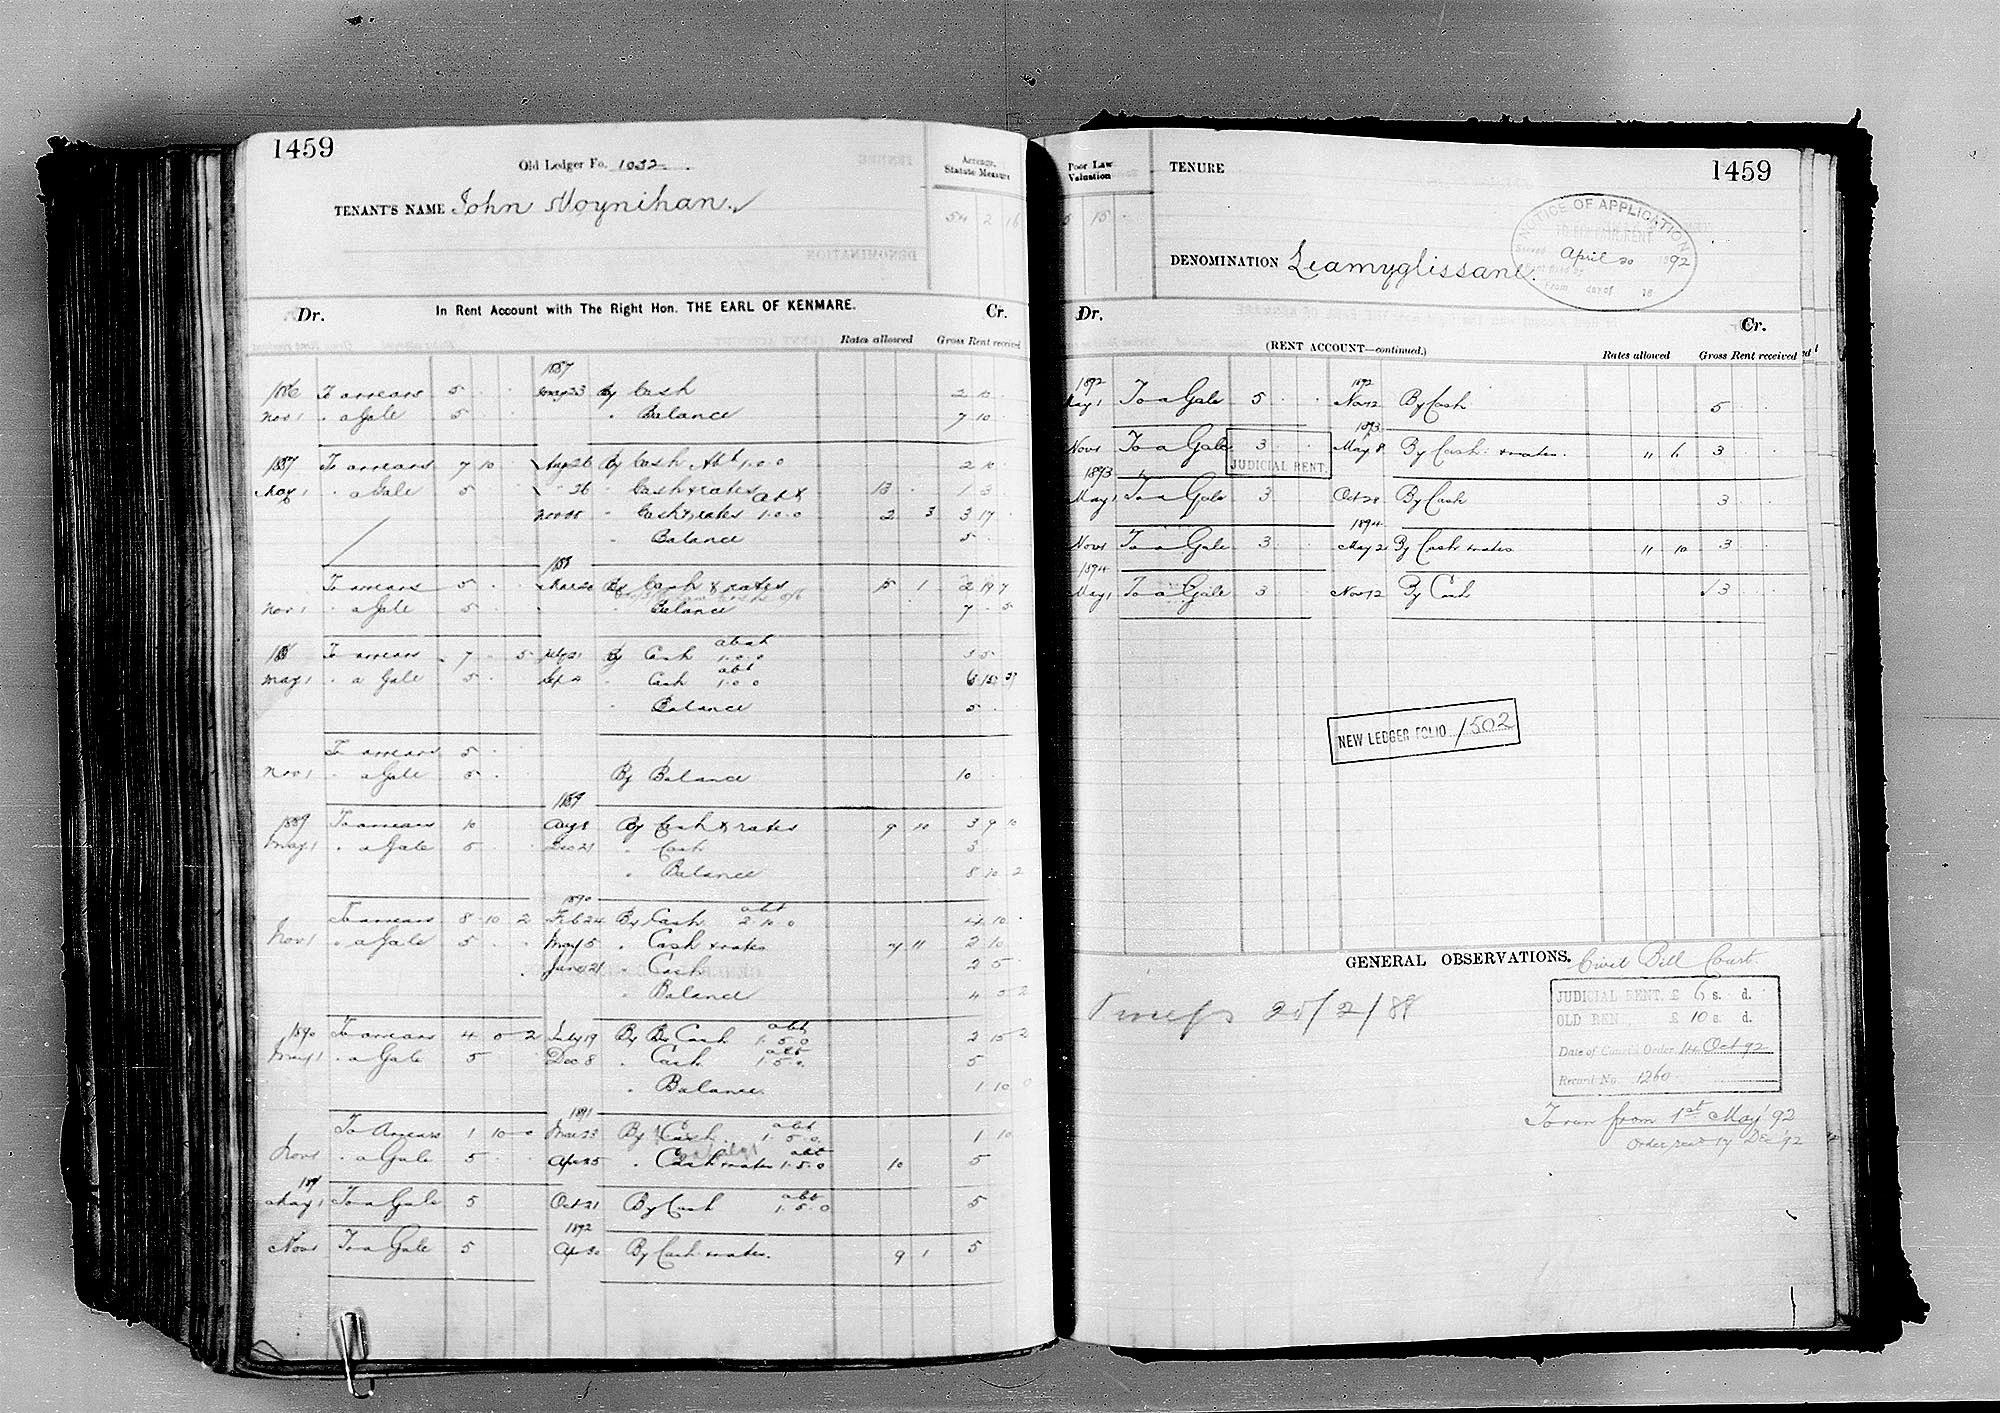 1459
Old Ledger Fo. 1032
TENANT'S NAME John Moynihan
Acreage, Statute Measure
54 2 16
In Rent Account with The Right Hon. THE EARL OF KENMARE.
Dr. Cr.
Rates allowed Gross Rent received
1887
1886 To arrears 5 . . May 23 By Cash 2 10
Nov 1 " a Gale 5 " Balance 7 10
1887 To arrears 7 10 Aug 26 By Cash Abt 1.0.0 2 10
May 1 " a Gale 5 " 26 " Cash & rates abt 13 . 1 3
" Cash & rates 1.0.0 2 3 3 17
" Balance 5
1888
To arrears 5 . . Mar 20 By Cash & rates 15 1 2 19 7
Nov 1 " a Gale 5 " Balance 7 . 5
To arrears 7 . 5 By Cash 1.0.0
May 1 " a Gale 5 Sep 4 " Cash abt 1.0.0
" Balance 5
To arrears 5
Nov 1 " a Gale 5 By Balance 10
1889
1889 To arrears 10 Aug 8 By Cash & rates 9 10 3 9 10
May 1 " a Gale 5 Dec 21 " Cash 3
" Balance 8 10 2
1890
To arrears 8 10 2 Feb 24 By Cash abt 2.10.0 4 10
Nov 1 " a Gale 5 May 5 " Cash & rates 7 11 2 10
June 21 " Cash 2 5
" Balance 4 5 2
1890 To arrears 4 5 2 July 19 By By Cash abt 1.5.0 2 15 2
May 1 " a Gale 5 Dec 8 " Cash abt 1.5.0 5
" Balance 1 10 0
1891
To Arrears 1 10 0 Mar 23 By Cash abt 1.5.0 1 10
Nov 1 " a Gale 5 " Cash & rates abt 1.5.0 10 5
1891
May 1 To a Gale 5 Oct 21 By Cash abt 1.5.0 5
1892
Nov 1 To a Gale 5 Apr 30 By Cash & rates. 9 1 5
Poor Law Valuation
5 15
TENURE
1459
NOTICE OF APPLICATION
TO FIX FAIR RENT
Served April 20 1892
From day of 18
DENOMINATION Leamyglissane.
Dr. Cr.
(RENT ACCOUNT—continued.)
Rates allowed Gross Rent received
1892 1892
May 1 To a Gale 5 . . Nov 12 By Cash 5
1893
Nov 1 To a Gale 3 May 8 By Cash & rates. " 6 3
JUDICIAL RENT.
1893
May 1 To a Gale 3 Oct 28 By Cash 3
1894
Nov 1 To a Gale 3 May 21 By Cash & rates " 10 3
1894
May 1 To a Gale 3 Nov 12 By Cash 3
NEW LEDGER FOLIO 1502
GENERAL OBSERVATIONS.
Civil Bill Court
JUDICIAL RENT, £ 6 s. d.
OLD RENT £ 10 s. d.
Date of Court's Order 14 Oct 92
Record No. 1260
To run from 1st May '92
Order read 17 Dec '92